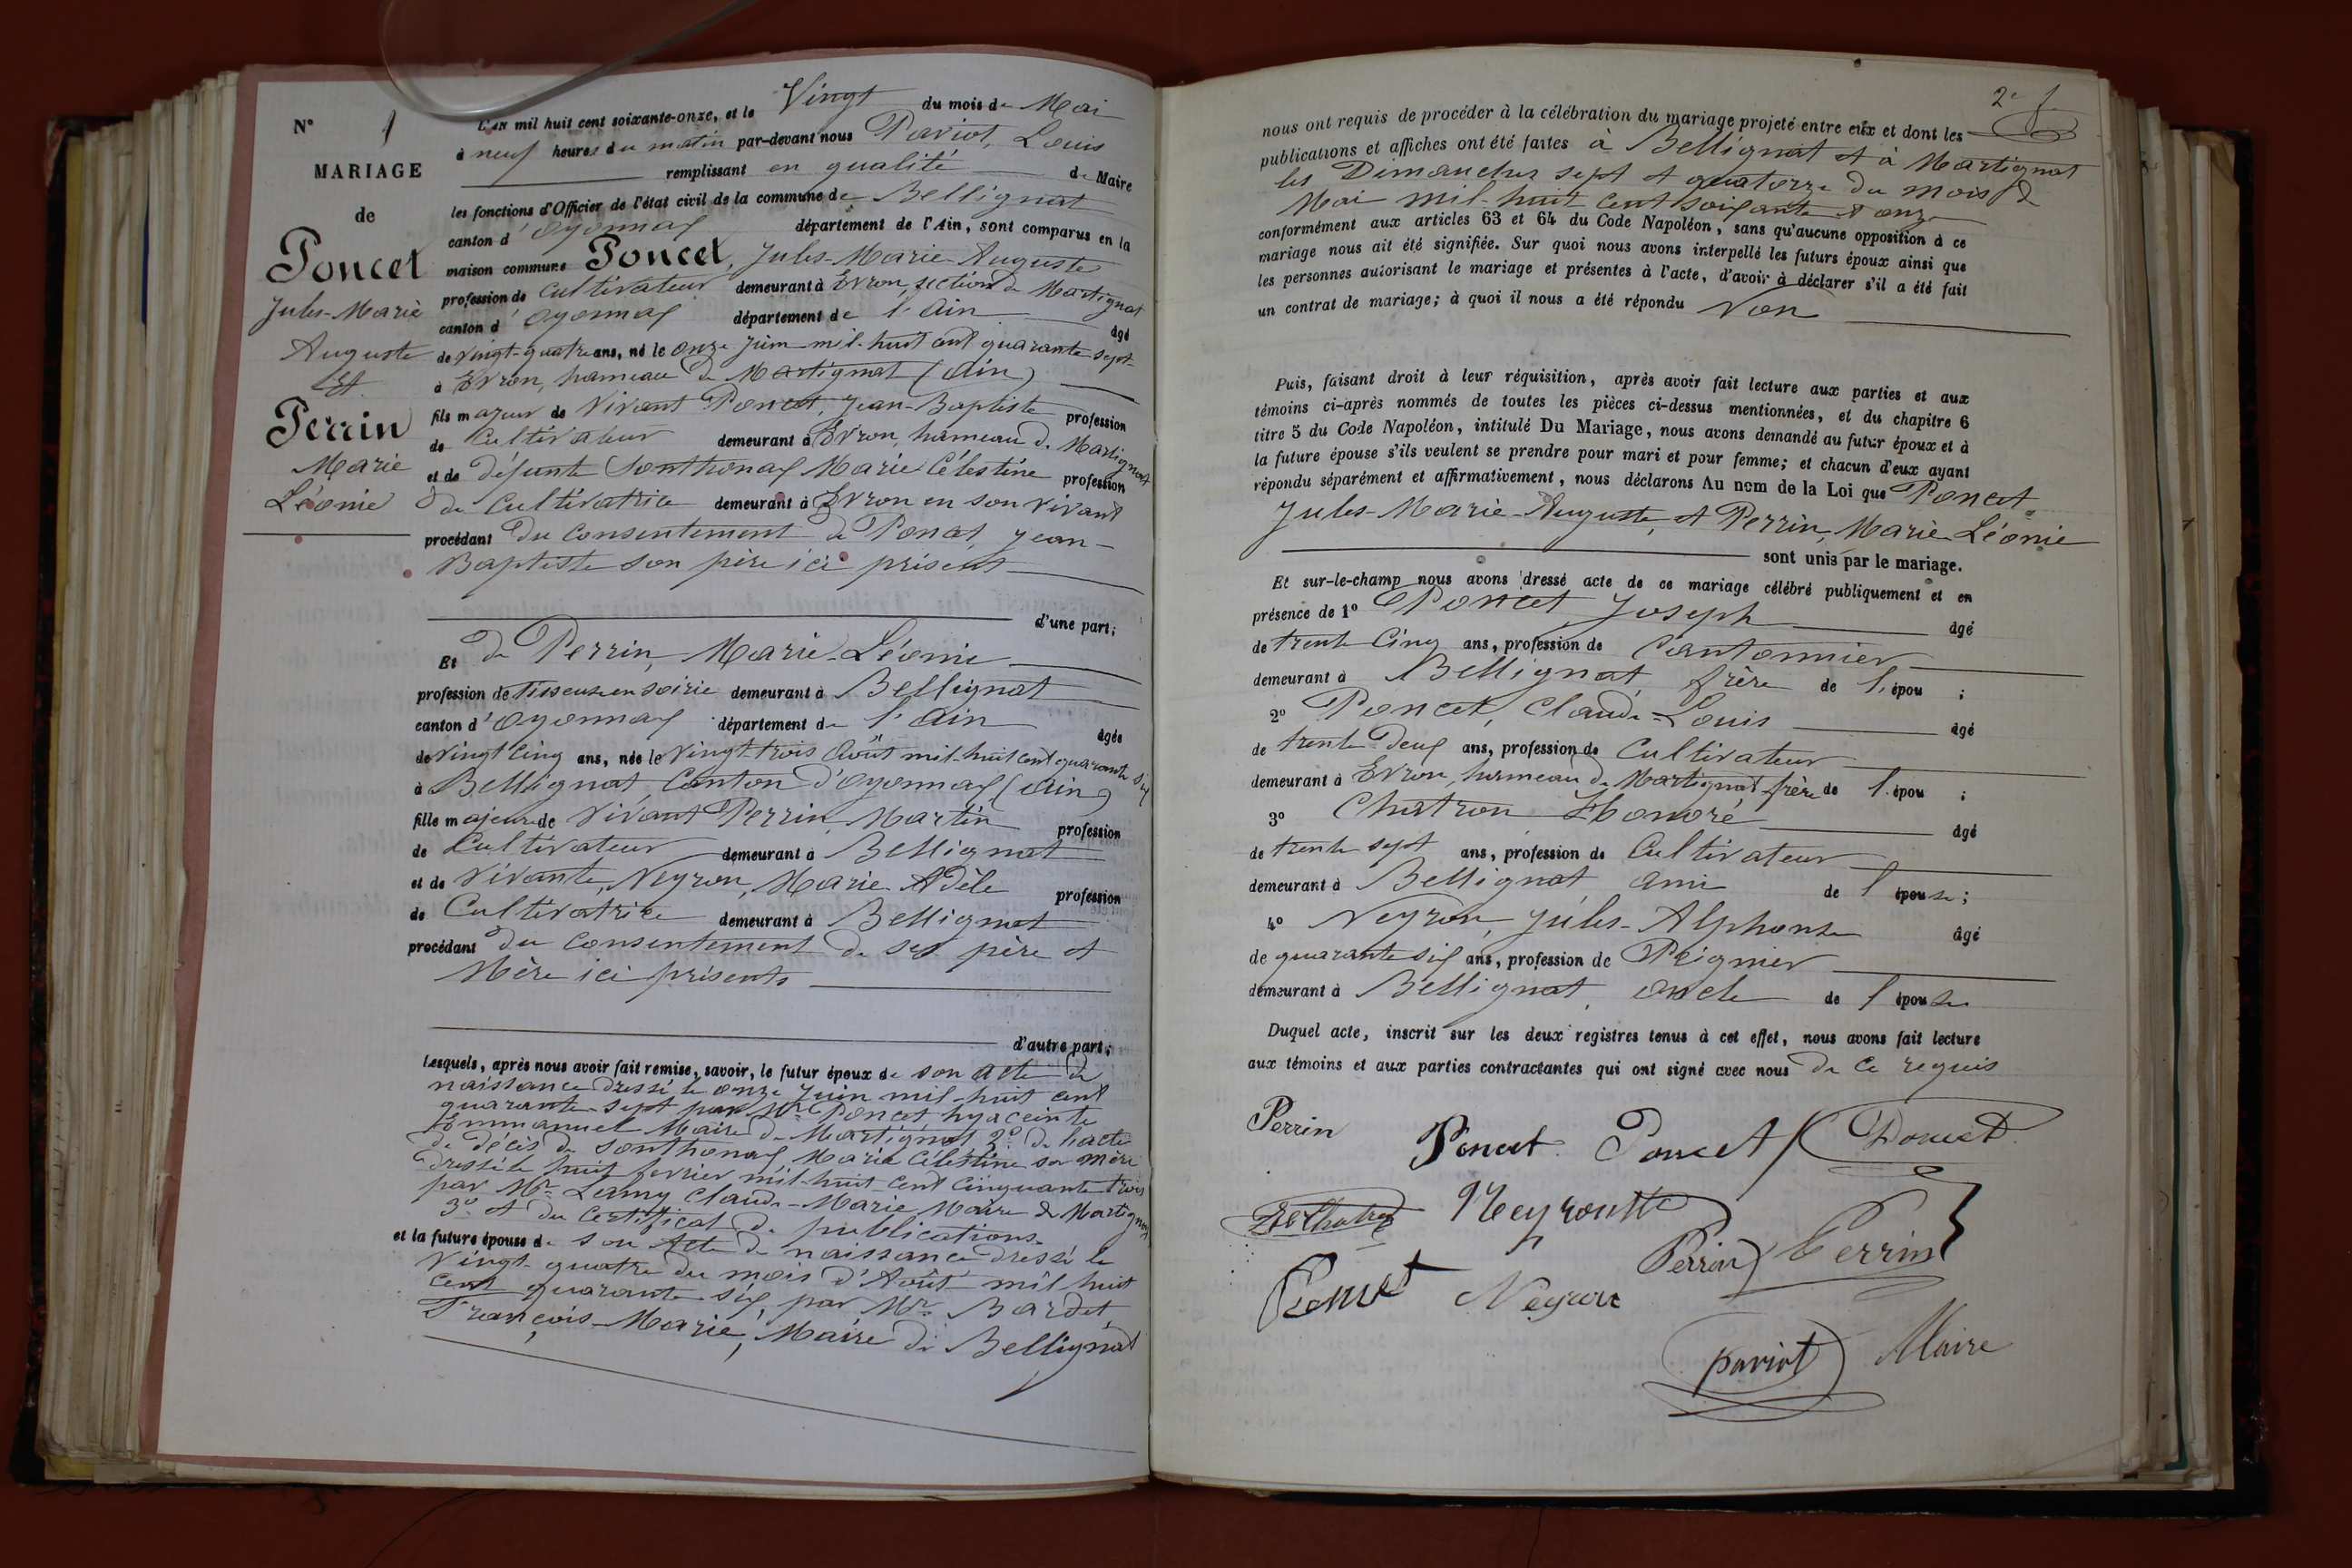 N° 1
MARIAGE
de
Poncet
Jules-Marie
Auguste
Et
Perrin
Marie
Léonie
L'an mil huit cent soixante-onze, et le Vingt du mois de Mai
à neuf heures du matin par-devant nous Pariot, Louis
remplissant en qualité de Maire
les fonctions d'Officier de l'état civil de la commune de Bellignat
canton d'Oyonnax département de l'Ain, sont comparus en la
maison commune Poncet, Jules-Marie-Auguste
profession de Cultivateur demeurant à Evron, section de Martignat
canton d'Oyonnax département de l'Ain âgé
de vingt-quatre ans, né le onze juin mil-huit cent quarante-sept
à Evron, hameau de Martignat (Ain)
fils majeur de Vivant Poncet, Jean-Baptiste profession
de Cultivateur demeurant à Evron, hameau de Martignat
et de défunte Sonthonax Marie Célestine profession
de Cultivatrice demeurant à Evron en son vivant
procédant du Consentement de Poncet, Jean-
Baptiste son père ici présent
d'une part;
Et de Perrin, Marie-Léonie
profession de Tisseuse en soirie demeurant à Bellignat
canton d'Oyonnax département de l'Ain âgée
de Vingt cinq ans, née le Vingt-trois Août mil-huit cent quarante six
à Bellignat, Canton d'Oyonnax (Ain)
fille majeure de Vivant Perrin, Martin profession
de Cultivateur demeurant à Bellignat
et de Vivante, Neyron, Marie-Adèle profession
de Cultivatrice demeurant à Bellignat
procédant du Consentement de ses père et
Mère ici présents
d'autre part;
Lesquels, après nous avoir fait remise, savoir, le futur époux de son acte de
naissance dressé le onze Juin mil-huit cent
quarante-sept par Mr Poncet hyaceinte
Emmanuel Maire de Martignat 2° de l'acte
de décès de Sonthonax Marie Célestine sa mère
dressé le huit fevrier mil-huit-cent cinquante trois
par Mr Lamy Claude-Marie Maire de Martignat
3° et du Certificat de publications
et la future épouse de son Acte de naissance dressé le
Vingt-quatre du mois d'Août mil huit
cent quarante six, par Mr Bardet,
François-Marie, Maire de Bellignat
2e f.
nous ont requis de procéder à la célébration du mariage projeté entre eux et dont les
publications et affiches ont été faites à Bellignat et à Martignat
les Dimanches sept et quatorze du mois de
Mai mil-huit cent soixante et onze
conformément aux articles 63 et 64 du Code Napoléon, sans qu'aucune opposition à ce
mariage nous ait été signifiée. Sur quoi nous avons interpellé les futurs époux ainsi que
les personnes autorisant le mariage et présentes à l'acte, d'avoir à déclarer s'il a été fait
un contrat de mariage; à quoi il nous a été répondu Non
Puis, faisant droit à leur réquisition, après avoir fait lecture aux parties et aux
témoins ci-après nommés de toutes les pièces ci-dessus mentionnées, et du chapitre 6
titre 5 du Code Napoléon, intitulé Du Mariage, nous avons demandé au futur époux et à
la future épouse s'ils veulent se prendre pour mari et pour femme; et chacun d'eux ayant
répondu séparément et affirmativement, nous déclarons Au nom de la Loi que Poncet,
Jules-Marie-Auguste, et Perrin, Marie-Léonie
sont unis par le mariage.
Et sur-le-champ nous avons dressé acte de ce mariage célébré publiquement et en
présence de 1° Poncet Joseph âgé
de trente Cinq ans, profession de Cantonnier
demeurant à Bellignat, frère de l'épou ;
2° Poncet, Claude-Louis âgé
de trente Deux ans, profession de Cultivateur
demeurant à Evron, hameau de Martignat frère de l'épou ;
3° Chatron Honoré âgé
de trente sept ans, profession de Cultivateur
demeurant à Bellignat ami de l'épouse;
4° Neyron, Jules-Alphonse âgé
de quarante six ans, profession de Peignier
demeurant à Bellignat, oncle de l'épouse
Duquel acte, inscrit sur les deux registres tenus à cet effet, nous avons fait lecture
aux témoins et aux parties contractantes qui ont signé avec nous de ce requis
Perrin Poncet Poncet Poncet
Perrin Perrin
Poncet Neyron
pariot Maire